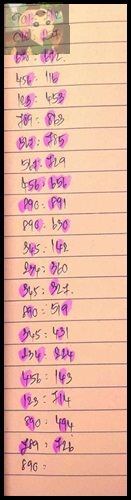 456 : 116
103 : 453
789 : 863
567 : 785
567 : 729
456 : 656
890 : 891
890 : 630
345 : 142
234 : 360
345 : 327.
890 : 519
345 : 431
234 : 224
456 : 143
123 : 714
890 : 494
789 : 726
890 :